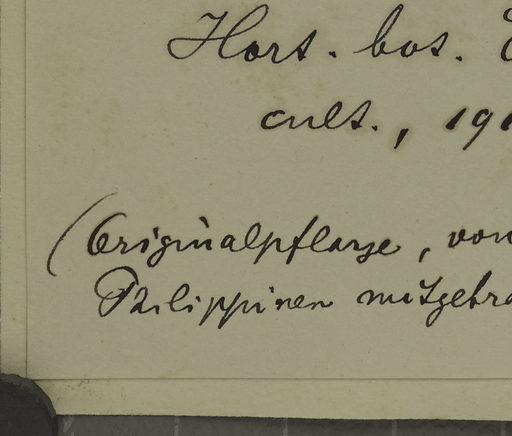 Hort. bot.
cult., 191
(Originalpflanze, von
Philippinen mitgebra